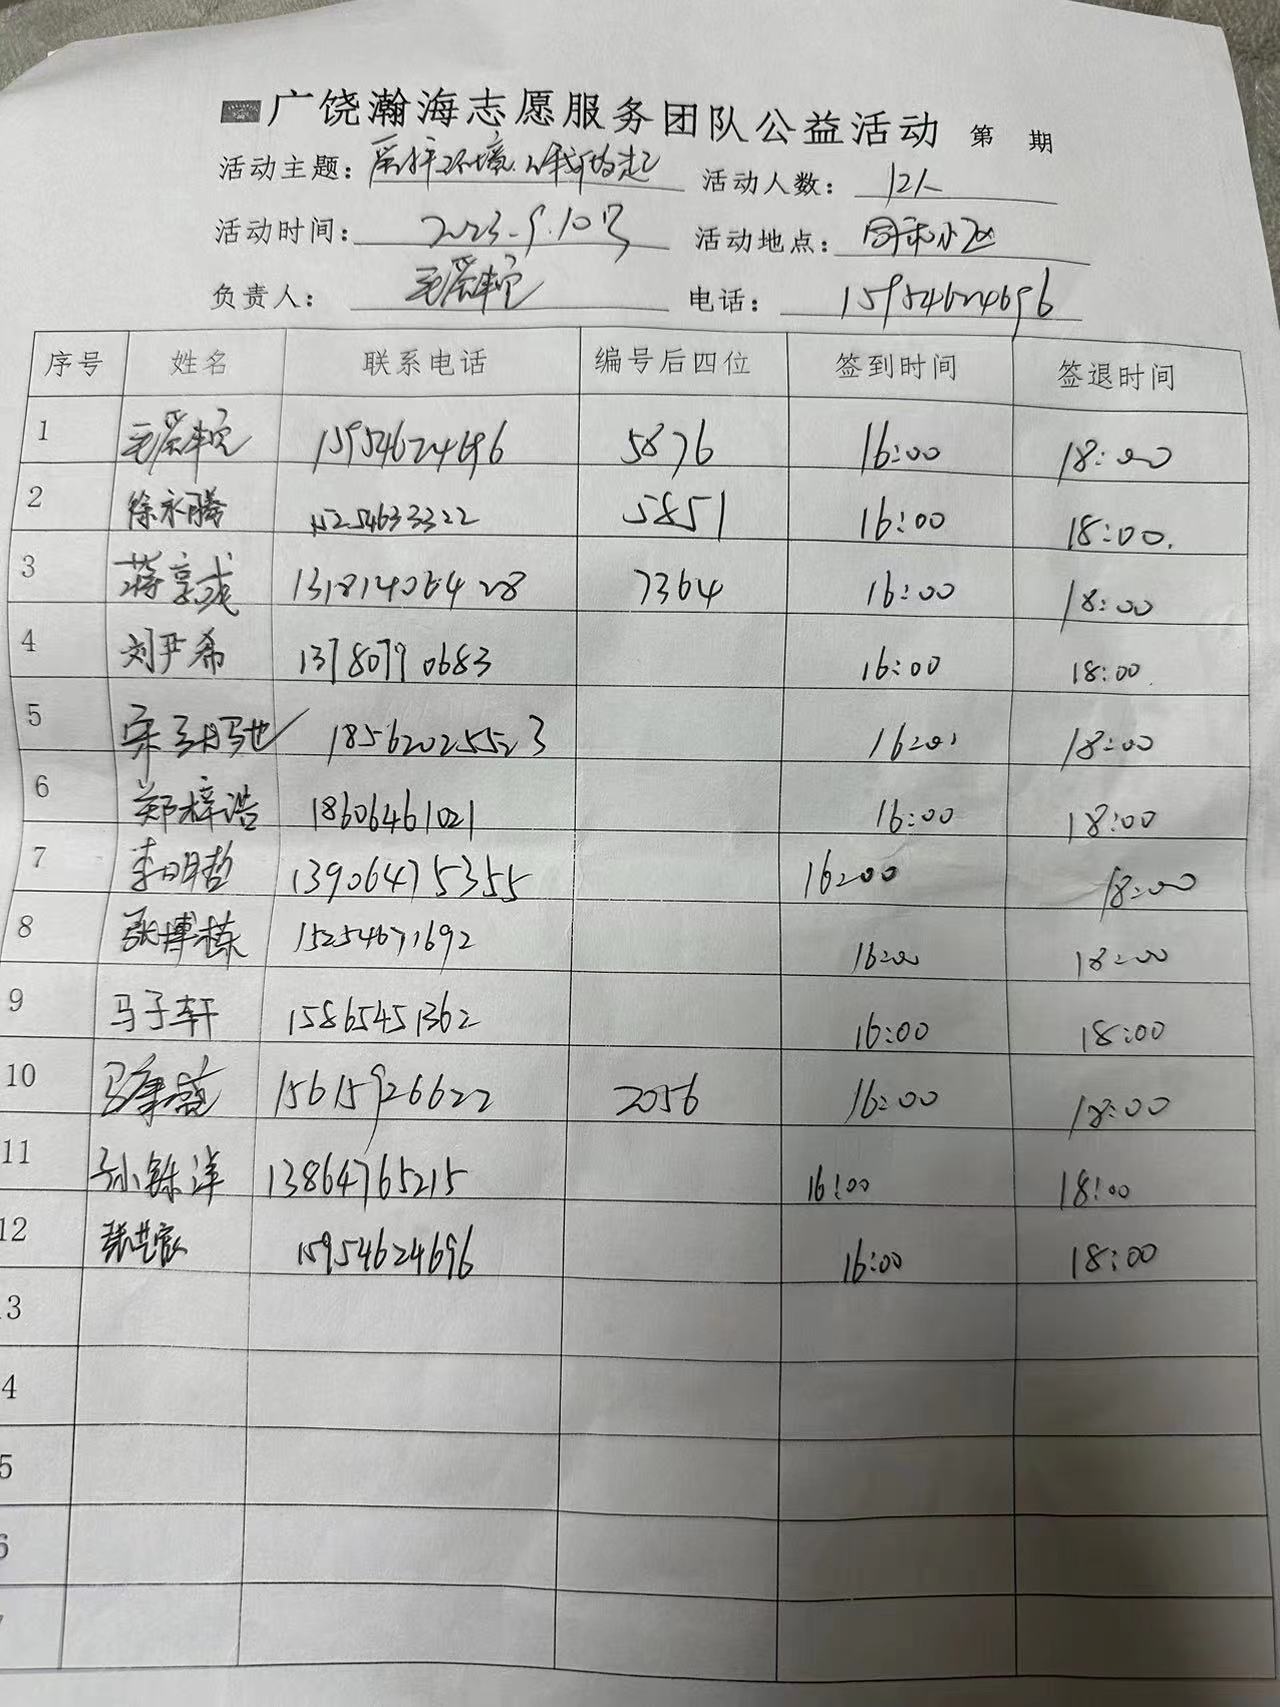 广饶瀚海志愿服务团队公益活动 第 期
活动主题: 爱护环境.从我做起 活动人数: 12人
活动时间: 2023.9.10号 活动地点: 同和小区
负责人: 电话: 15954624696
序号 姓名 联系电话 编号后四位 签到时间 签退时间
1 15954624696 5876 16:00 18:00
2 徐永腾 15254633322 5851 16:00 18:00.
3 蒋享成 13181406428 7364 16:00 18:00
4 刘尹希 13780790683 16:00 18:00
5 宋 18562025523 16:00 18:00
6 郑梓浩 18606461021 16:00 18:00
7 李明哲 13906475355 16:00 18:00
8 张博栋 15254671692 16:00 18:00
9 马子轩 15865451362 16:00 18:00
10 15615926622 2056 16:00 18:00
11 孙铄洋 13864765215 16:00 18:00
12 15954624696 16:00 18:00
3
4
5
6